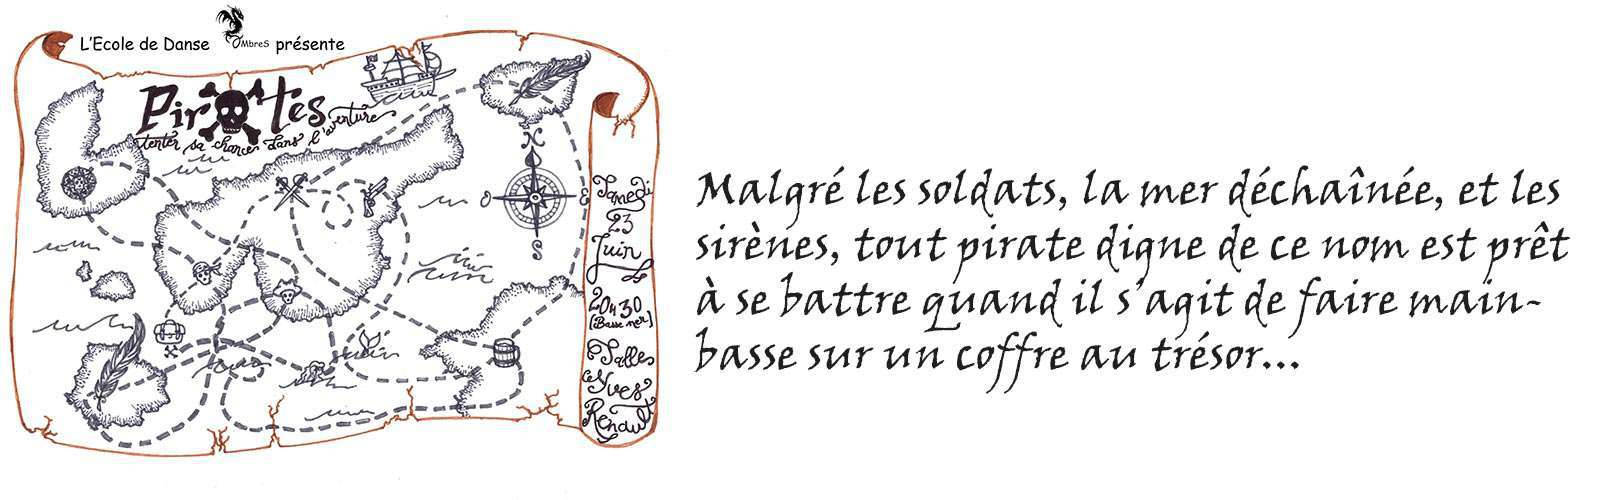 L'Ecole de Danse OMbreS présente
Pirates
tenter sa chance dans l'aventure
N
S
Samedi
23
Juin
20h30
[Basse mer]
Salles
Yves
Renault
Malgré les soldats, la mer déchaînée, et les
sirènes, tout pirate digne de ce nom est prêt
à se battre quand il s'agit de faire main-
basse sur un coffre au trésor...